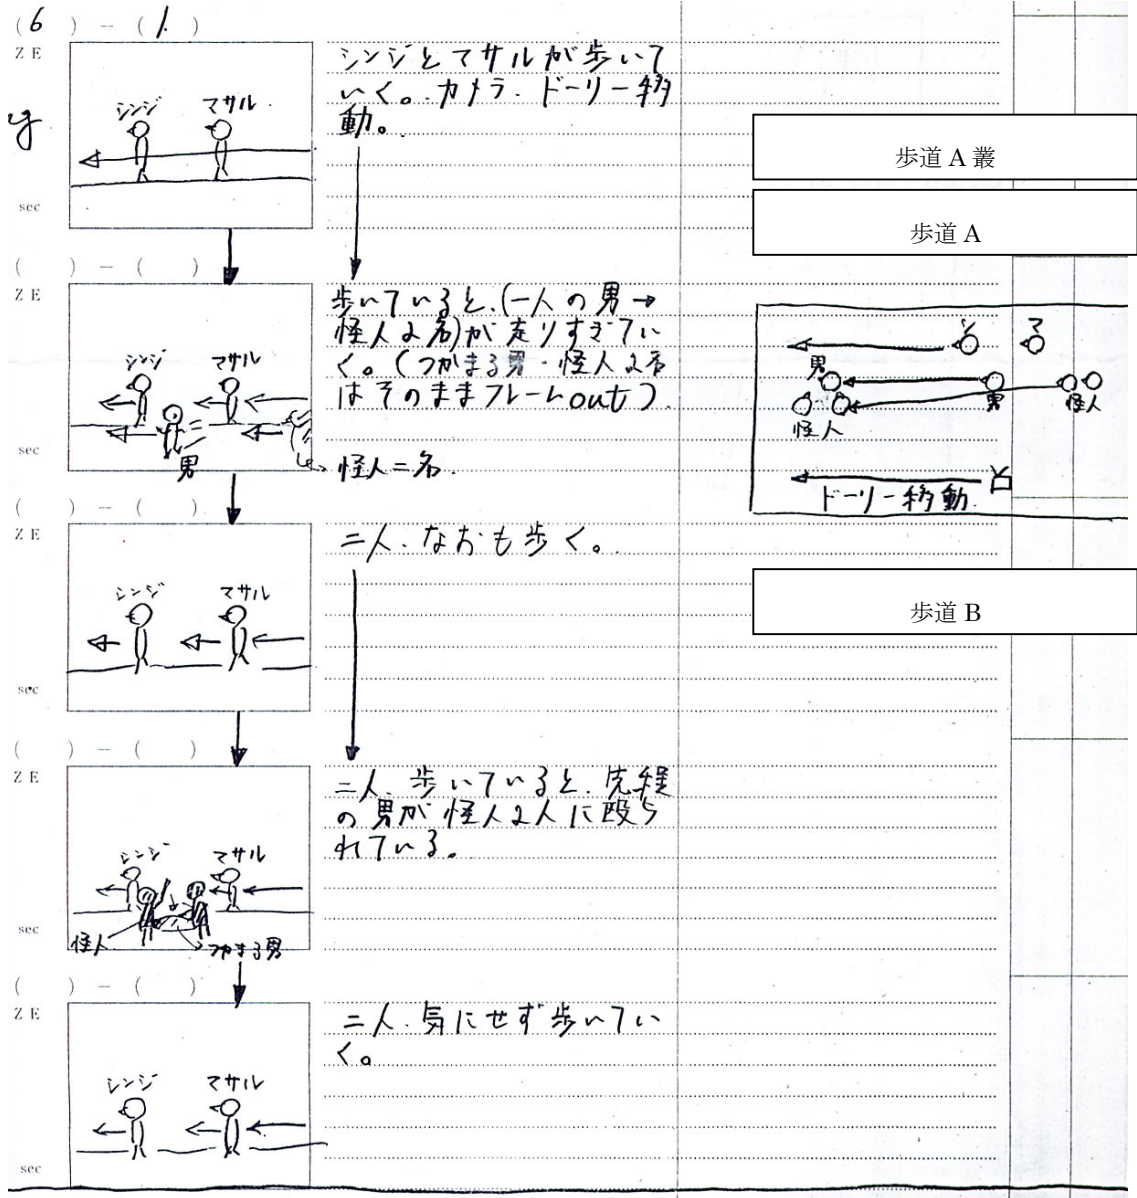 (6) - (1.)
Z E
シンジ
マサル
sec
シンジとマサルが歩いて
いく。カメラ・ドーリー移
動。
歩道 A 叢
歩道 A
( ) - ( )
Z E
シンジ
マサル
男
sec
歩いていると、(一人の男→
怪人2名)が走りすぎてい
く。(つかまる男・怪人2名
はそのままフレームout)
怪人二名.
シ
マ
男
男
怪人
怪人
ドーリー移動.
( ) - ( )
Z E
シンジ
マサル
sec
二人、なおも歩く。
歩道 B
( ) - ( )
Z E
シンジ
マサル
怪人
つかまる男
sec
二人、歩いていると、先程
の男が怪人2人に殴ら
れている。
( ) - ( )
Z E
シンジ
マサル
sec
二人、気にせず歩いてい
く。